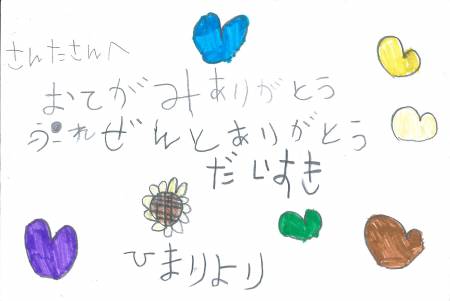 さんたさんへ
おてがみありがとう
ぷれぜんとありがとう
だいすき
ひまりより